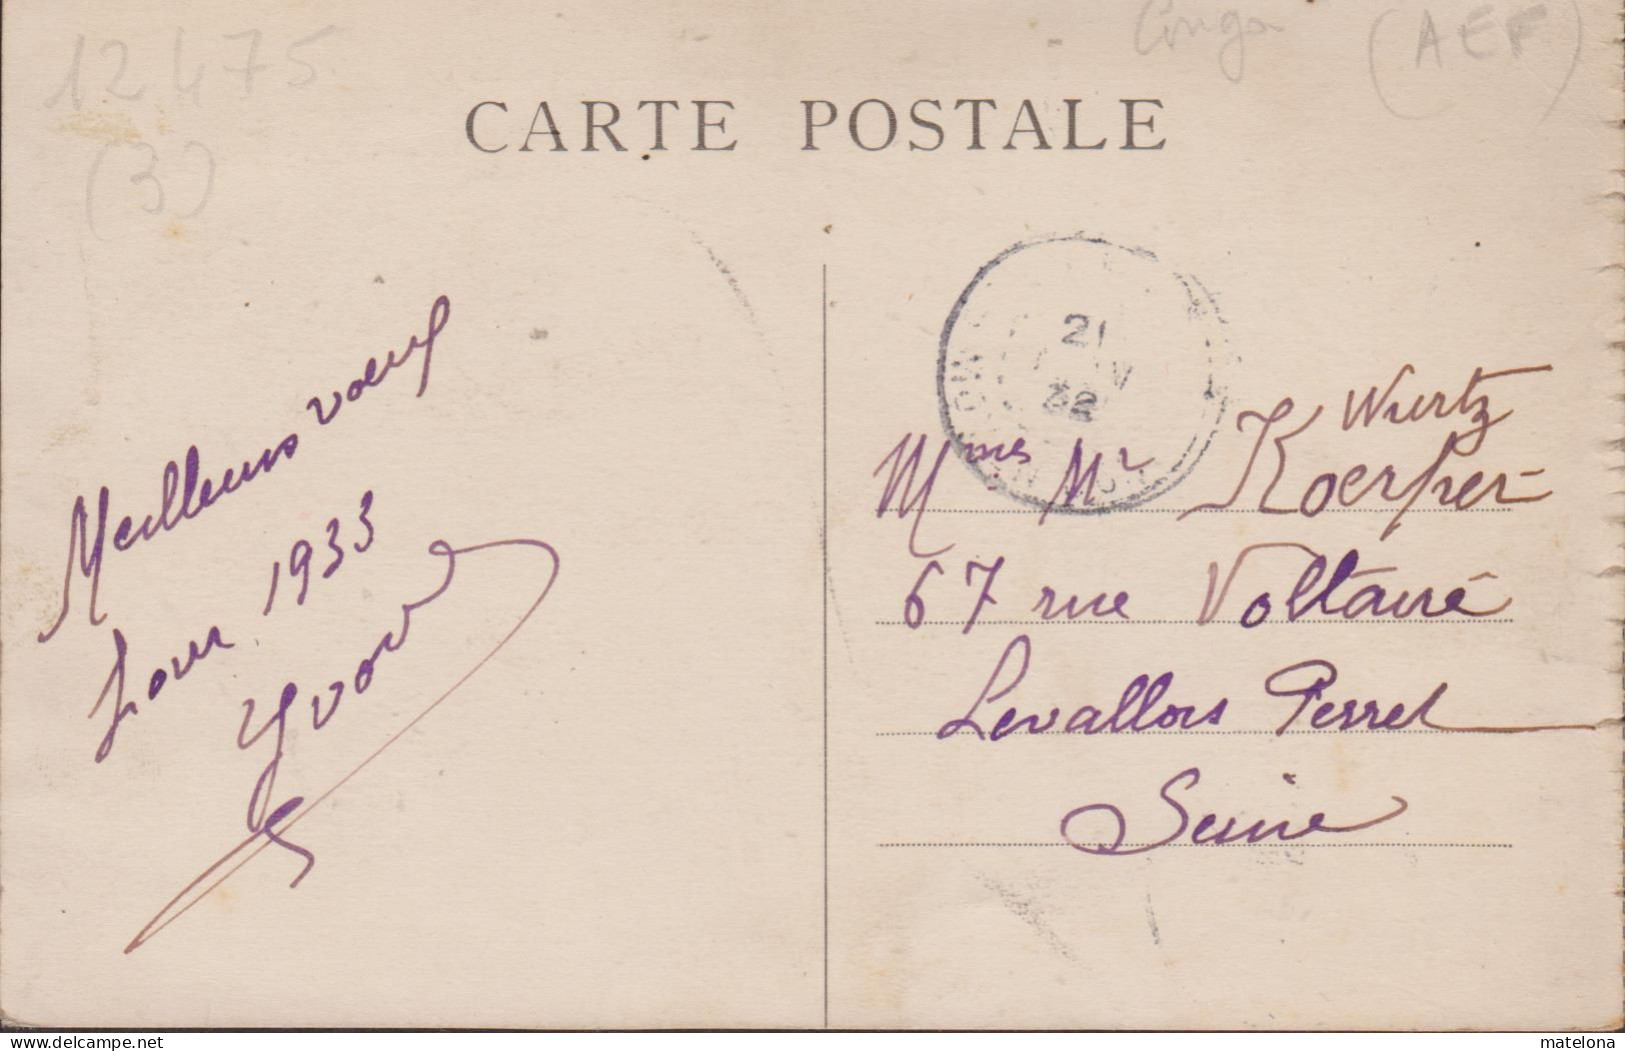 12475
(3)
Congo (AEF)
CARTE POSTALE
Meilleurs voeux
pour 1933
Yvon
21
32
Wurtz
Mmes Mr Koerper
67 rue Voltaire
Levallois Perret
Seine
matelona